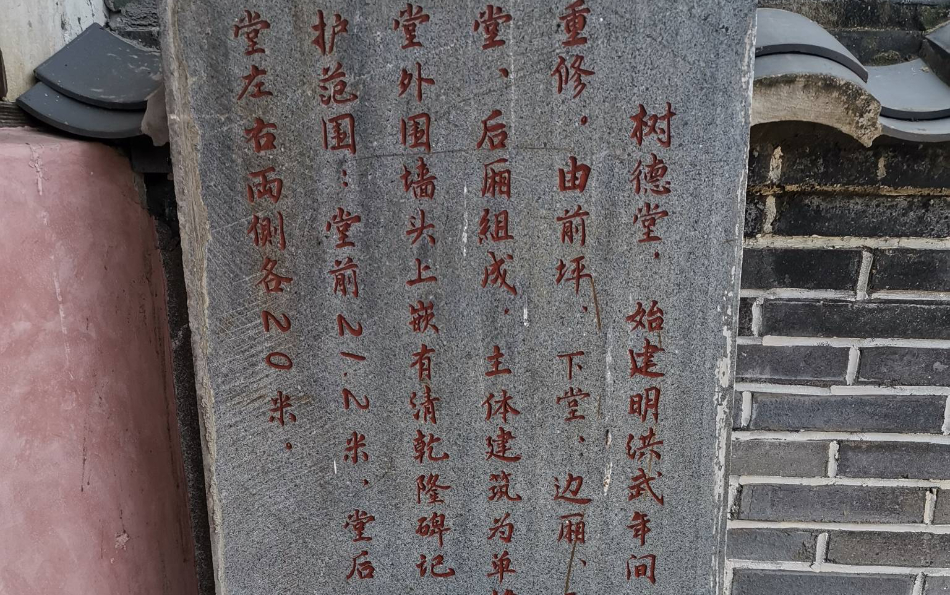 树德堂，始建明洪武年间
重修。由前坪、下堂：边厢、
堂、后厢組成．主体建筑为单
堂外围墙头上嵌有清乾隆碑记
护范围：堂前21.2米，堂后
堂左右両侧各20米．